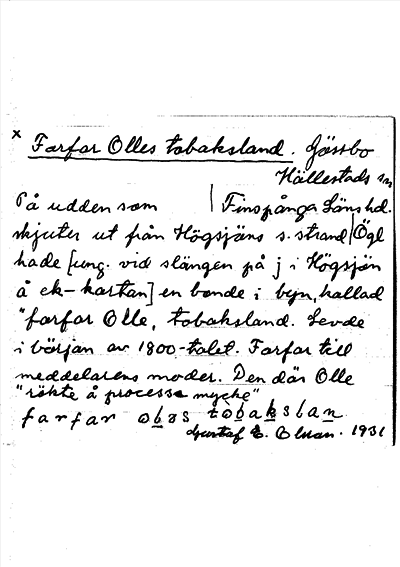 x Farfar Olles tobaksland. Gässbo
Hällestads sn
På udden som | Finspånga Läns hd.
skjuter ut från Högsjäns s. strand | Ögl
hade [ung. vid slängen på j i Högsjön
å ek-kartan] en bonde i byn, kallad
"farfar Olle, tobaksland. Levde
i början av 1800-talet. Farfar till
meddelarens moder. Den där Olle
"rökte å processa mycke"
farfar obos tobakslan
Gustaf E. Olsson. 1931